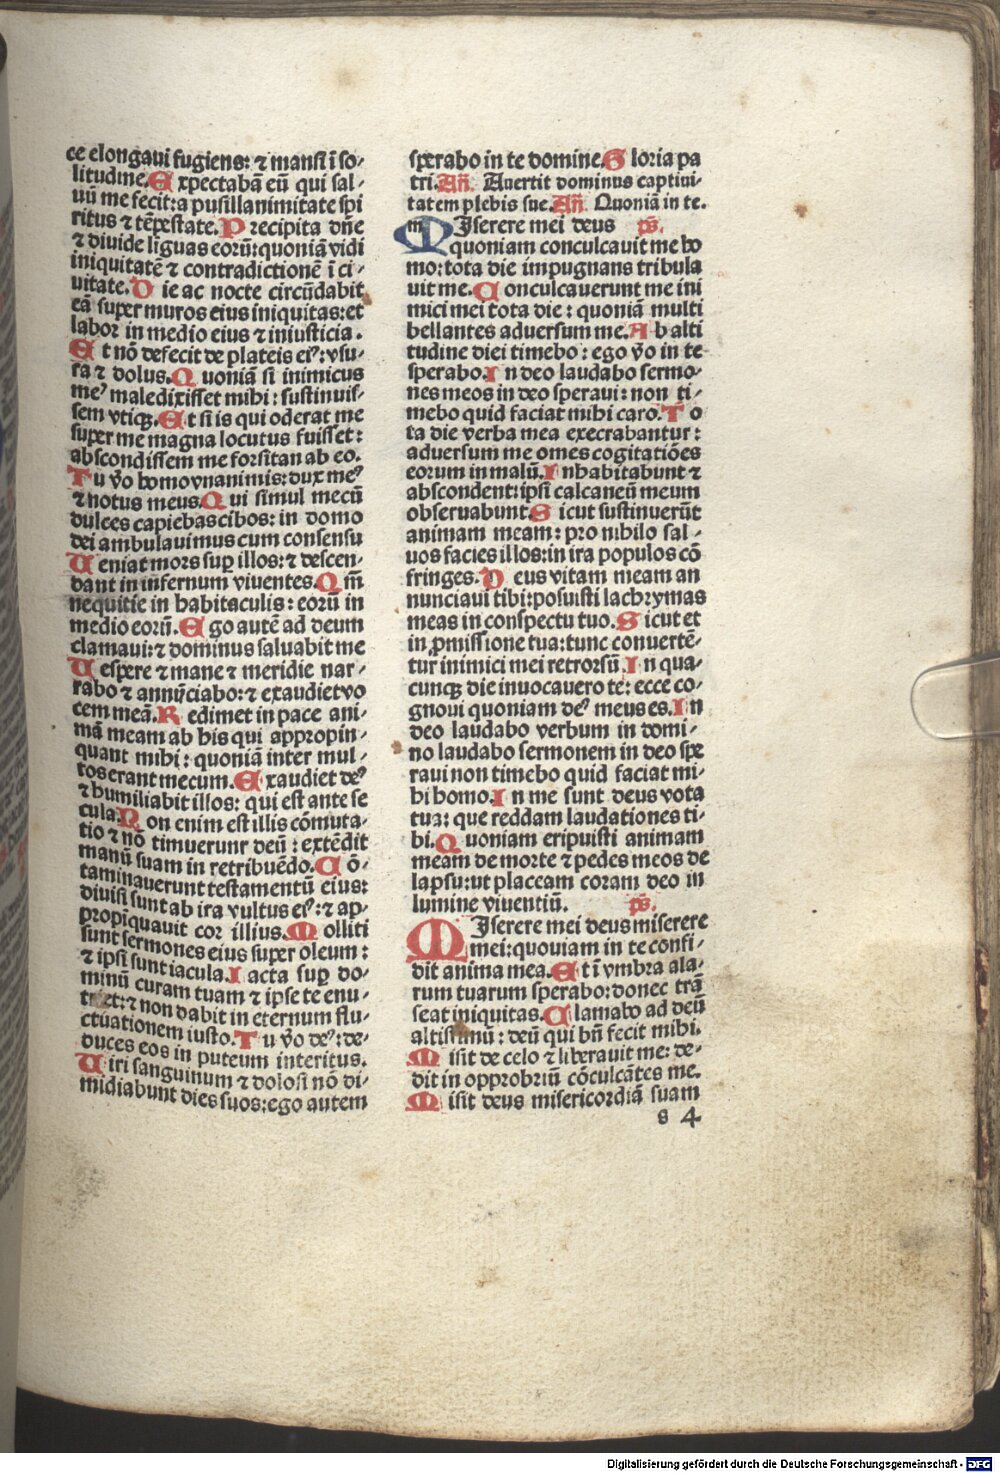 ce elongaui fugiens: ⁊ mansi ī so⸗
litudine. Expectabā eū qui sal⸗
uū me fecit: a pusillanimitate spi
ritus ⁊ tēpestate. Precipita dñe
⁊ diuide liguas eorū: quoniā vidi
iniquitatē ⁊ contradictionē ī ci⸗
uitate. Die ac nocte circūdabit
eā super muros eius iniquitas: et
labor in medio eius ⁊ iniusticia.
Et nō defecit de plateis eiꝰ: vsu⸗
ra ⁊ dolus. Quoniā si inimicus
meꝰ maledixisset mihi: sustinuis⸗
sem vtiqꝫ. Et si is qui oderat me
super me magna locutus fuisset:
abscondissem me forsitan ab eo.
Tu v̊o homo vnanimis: dux meꝰ
⁊ notus meus. Qui simul mecū
dulces capiebas cibos: in domo
dei ambulauimus cum consensu
Ueniat mors suꝑ illos: ⁊ descen⸗
dant in infernum viuentes. Qm̄
nequitie in habitaculis: eorū in
medio eorū. Ego autē ad deum
clamaui: ⁊ dominus saluabit me
Uespere ⁊ mane ⁊ meridie nar⸗
rabo ⁊ annūciabo: ⁊ exaudiet vo
cem meā. Redimet in pace ani⸗
mā meam ab his qui appropin⸗
quant mihi: quoniā inter mul⸗
tos erant mecum. Exaudiet deꝰ
⁊ humiliabit illos: qui est ante se
cula. Non enim est illis cōmuta⸗
tio ⁊ nō timuerunr deū: extēdit
manū suam in retribuēdo. Cō⸗
taminauerunt testamentū eius:
diuisi sunt ab ira vultus eiꝰ: ⁊ ap⸗
propiquauit cor illius. Molliti
sunt sermones eius super oleum:
⁊ ipsi sunt iacula. Iacta suꝑ do⸗
minū curam tuam ⁊ ipse te enu⸗
triet: ⁊ non dabit in eternum flu⸗
ctuationem iusto. Tu v̊o deꝰ: de⸗
duces eos in puteum interitus.
Uiri sanguinum ⁊ dolosi nō di⸗
midiabunt dies suos: ego autem
sperabo in te domine. Gloria pa
tri. Añ. Auertit dominus captiui⸗
tatem plebis sue. Añ. Quoniā in te.
MIserere mei deus ps̄.
quoniam conculcauit me ho
mo: tota die impugnans tribula
uit me. Conculcauerunt me ini
mici mei tota die: quoniā multi
bellantes aduersum me. Ab alti
tudine diei timebo: ego v̊o in te
sperabo. In deo laudabo sermo⸗
nes meos in deo speraui: non ti⸗
mebo quid faciat mihi caro. To
ta die verba mea execrabantur:
aduersum me omēs cogitatiōes
eorum in malū. Inhabitabunt ⁊
abscondent: ipsi calcaneū meum
obseruabunt. Sicut sustinuerūt
animam meam: pro nihilo sal⸗
uos facies illos: in ira populos cō
fringes. Deus vitam meam an
nunciaui tibi: posuisti lachrymas
meas in conspectu tuo. Sicut et
in ꝓmissione tua: tunc conuertē⸗
tur inimici mei retrorsū. In qua⸗
cunqꝫ die inuocauero te: ecce co⸗
gnoui quoniam deꝰ meus es. In
deo laudabo verbum in domi⸗
no laudabo sermonem in deo spe
raui non timebo quid faciat mi⸗
hi homo. In me sunt deus vota
tua: que reddam laudationes ti⸗
bi. Quoniam eripuisti animam
meam de morte ⁊ pedes meos de
lapsu: ut placeam coram deo in
lumine viuentiū. ps̄.
MIserere mei deus miserere
mei: quouiam in te consi⸗
dit anima mea. Et ī vmbra ala⸗
rum tuarum sperabo: donec trā
seat iniquitas. Clamabo ad deū
altissimū: deū qui bn̄ fecit mihi.
Misit de celo ⁊ liberauit me: de⸗
dit in opprobriū cōculcātes me.
Misit deus misericordiā suam
s 4
Digitalisierung gefördert durch die Deutsche Forschungsgemeinschaft - DFG